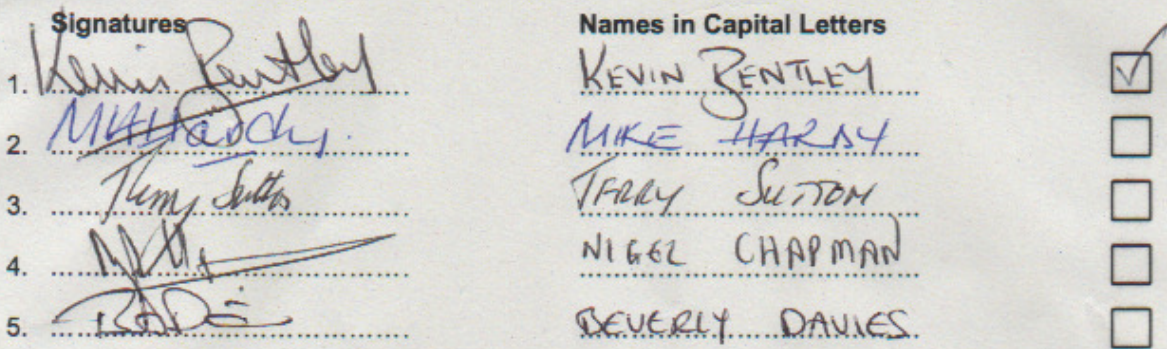 Signatures Names in Capital Letters
1. Kevin Bentley KEVIN BENTLEY
2. MAHardy. MIKE HARDY
3. Terry Sutton TERRY SUTTON
4. NIGEL CHAPMAN
5. BEVERLY DAVIES